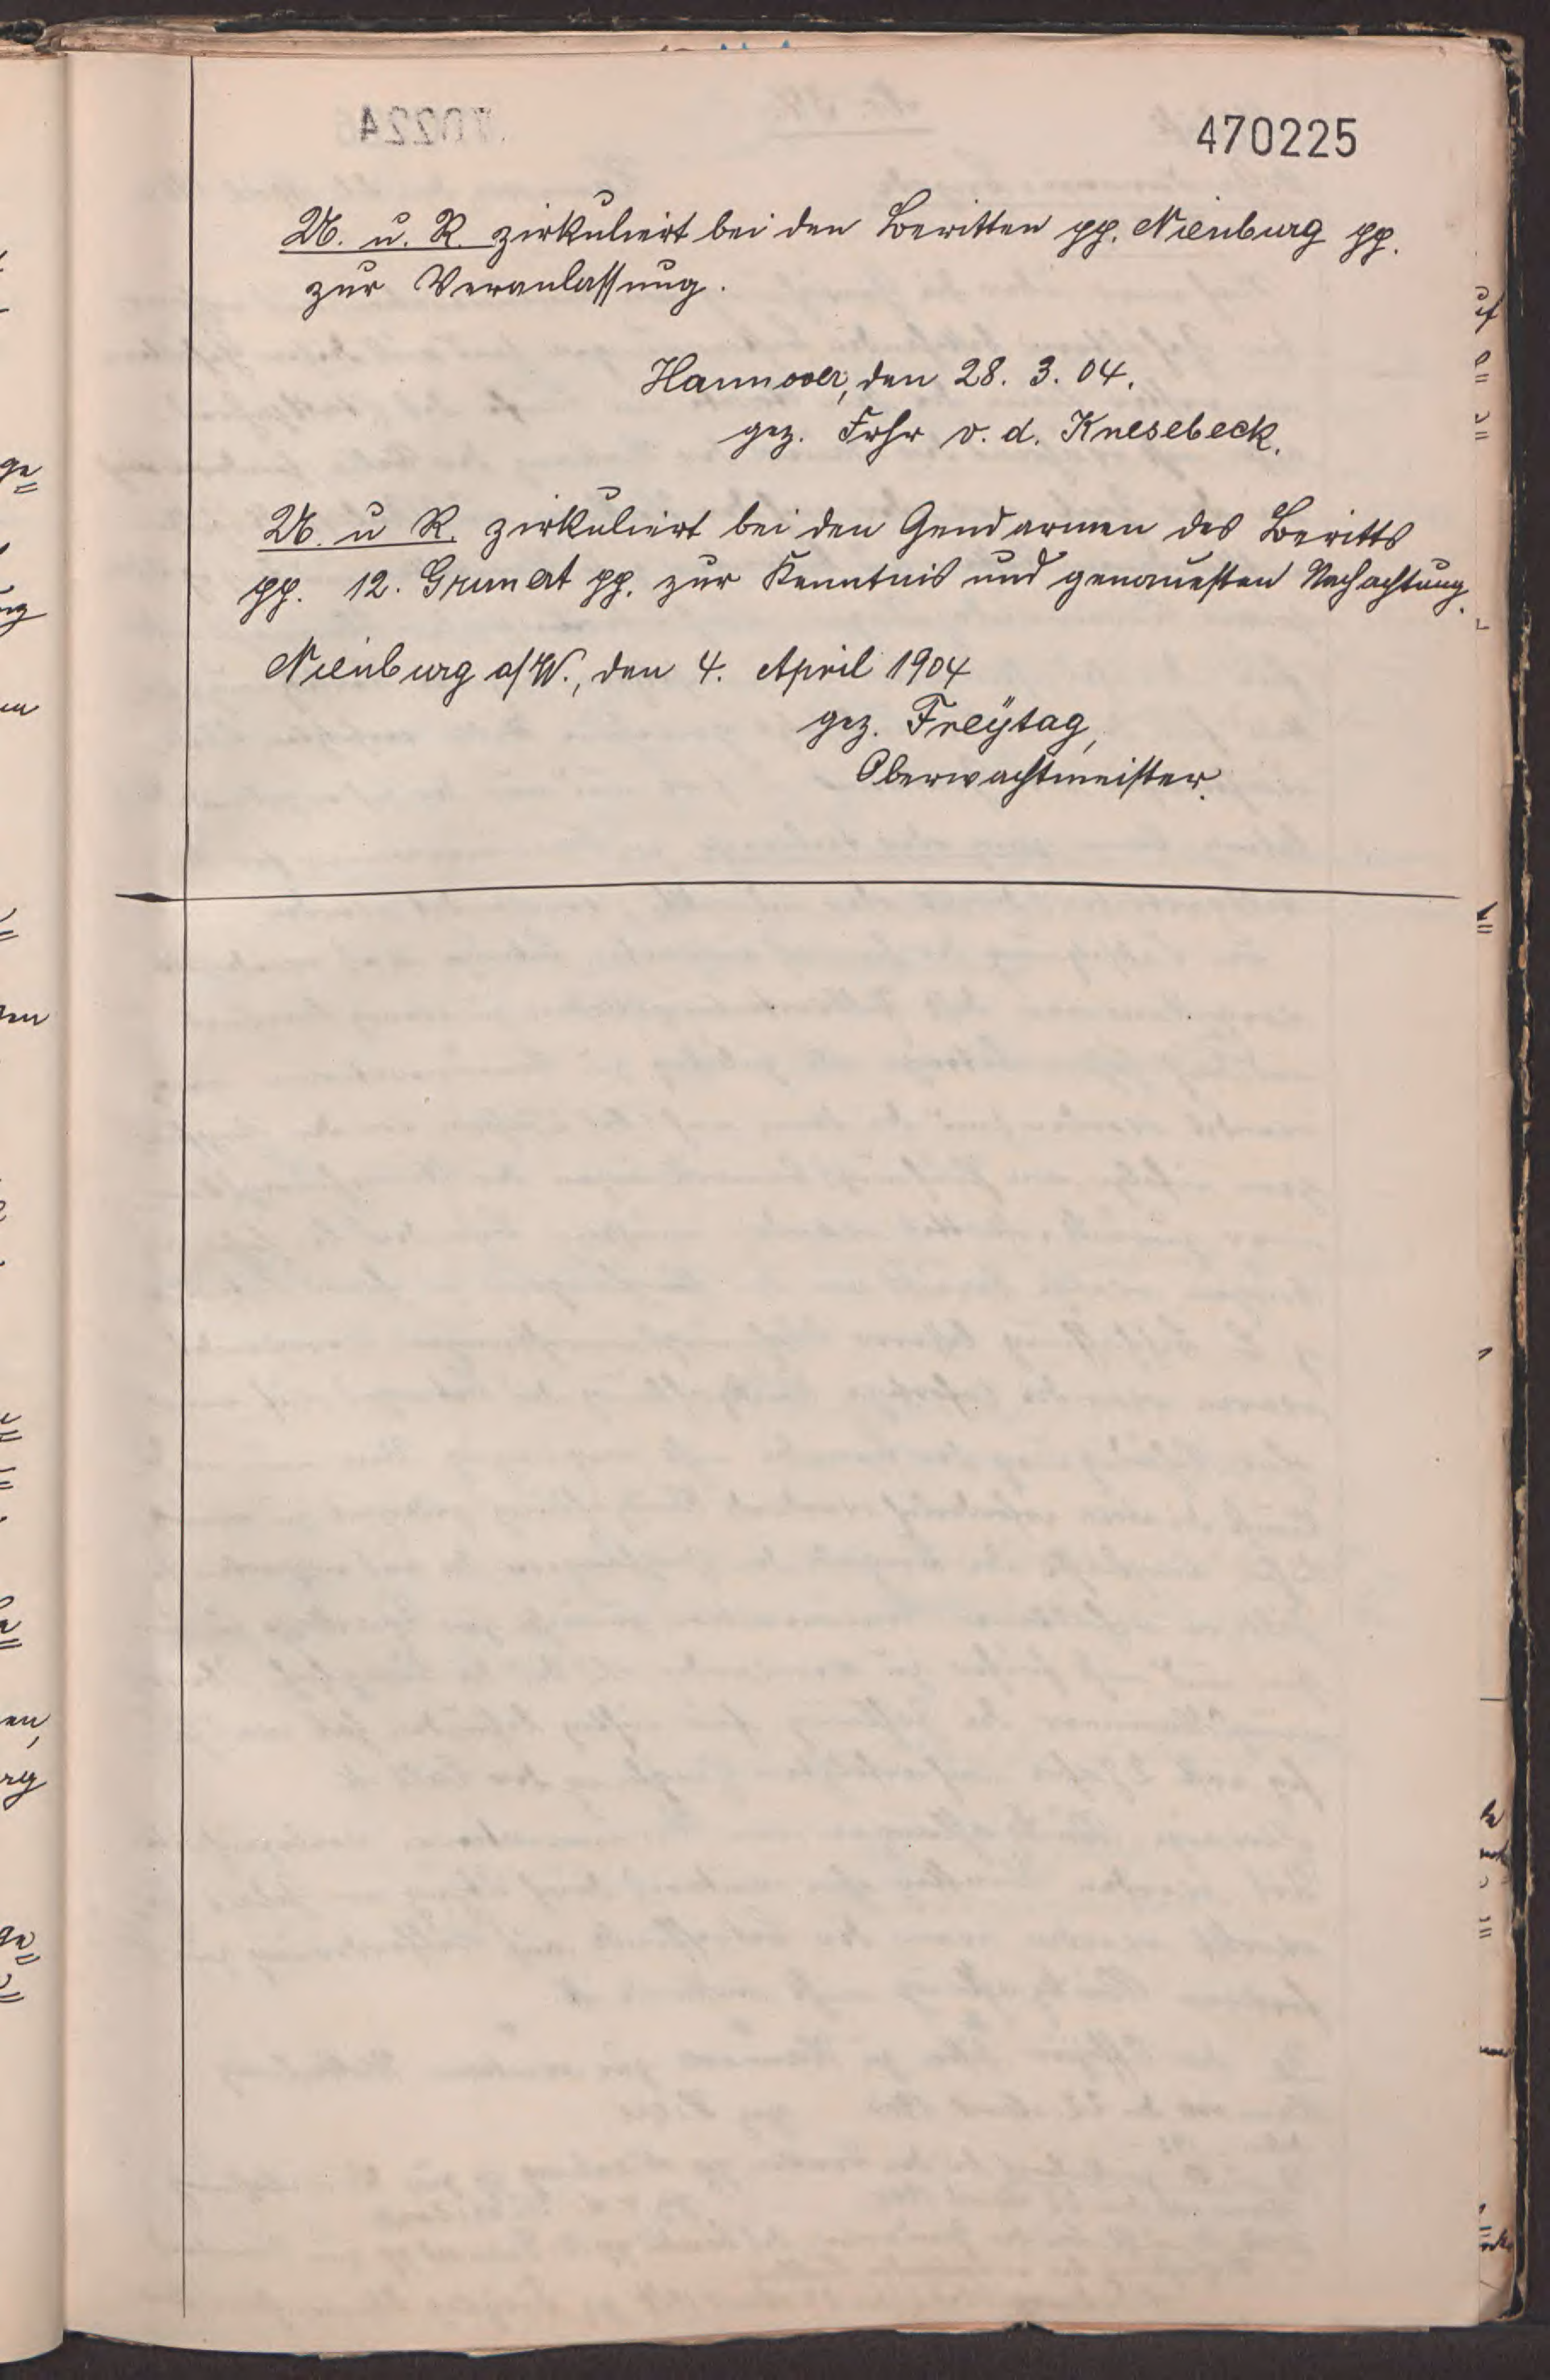 470225
U. u. R. zirkuliert bei den Beritten pp. Nienburg pp.
zur Veranlassung.
Hannover, den 28. 3. 04.
gez. Frhr v. d. Knesebeck.
U. u R. zirkuliert bei den Gendarmen des Beritts
pp. 12. Grunert pp. zur Kenntnis und genauesten Nachachtung.
Nienburg a/W., den 4. April 1904
gez. Freÿtag,
Oberwachtmeister.